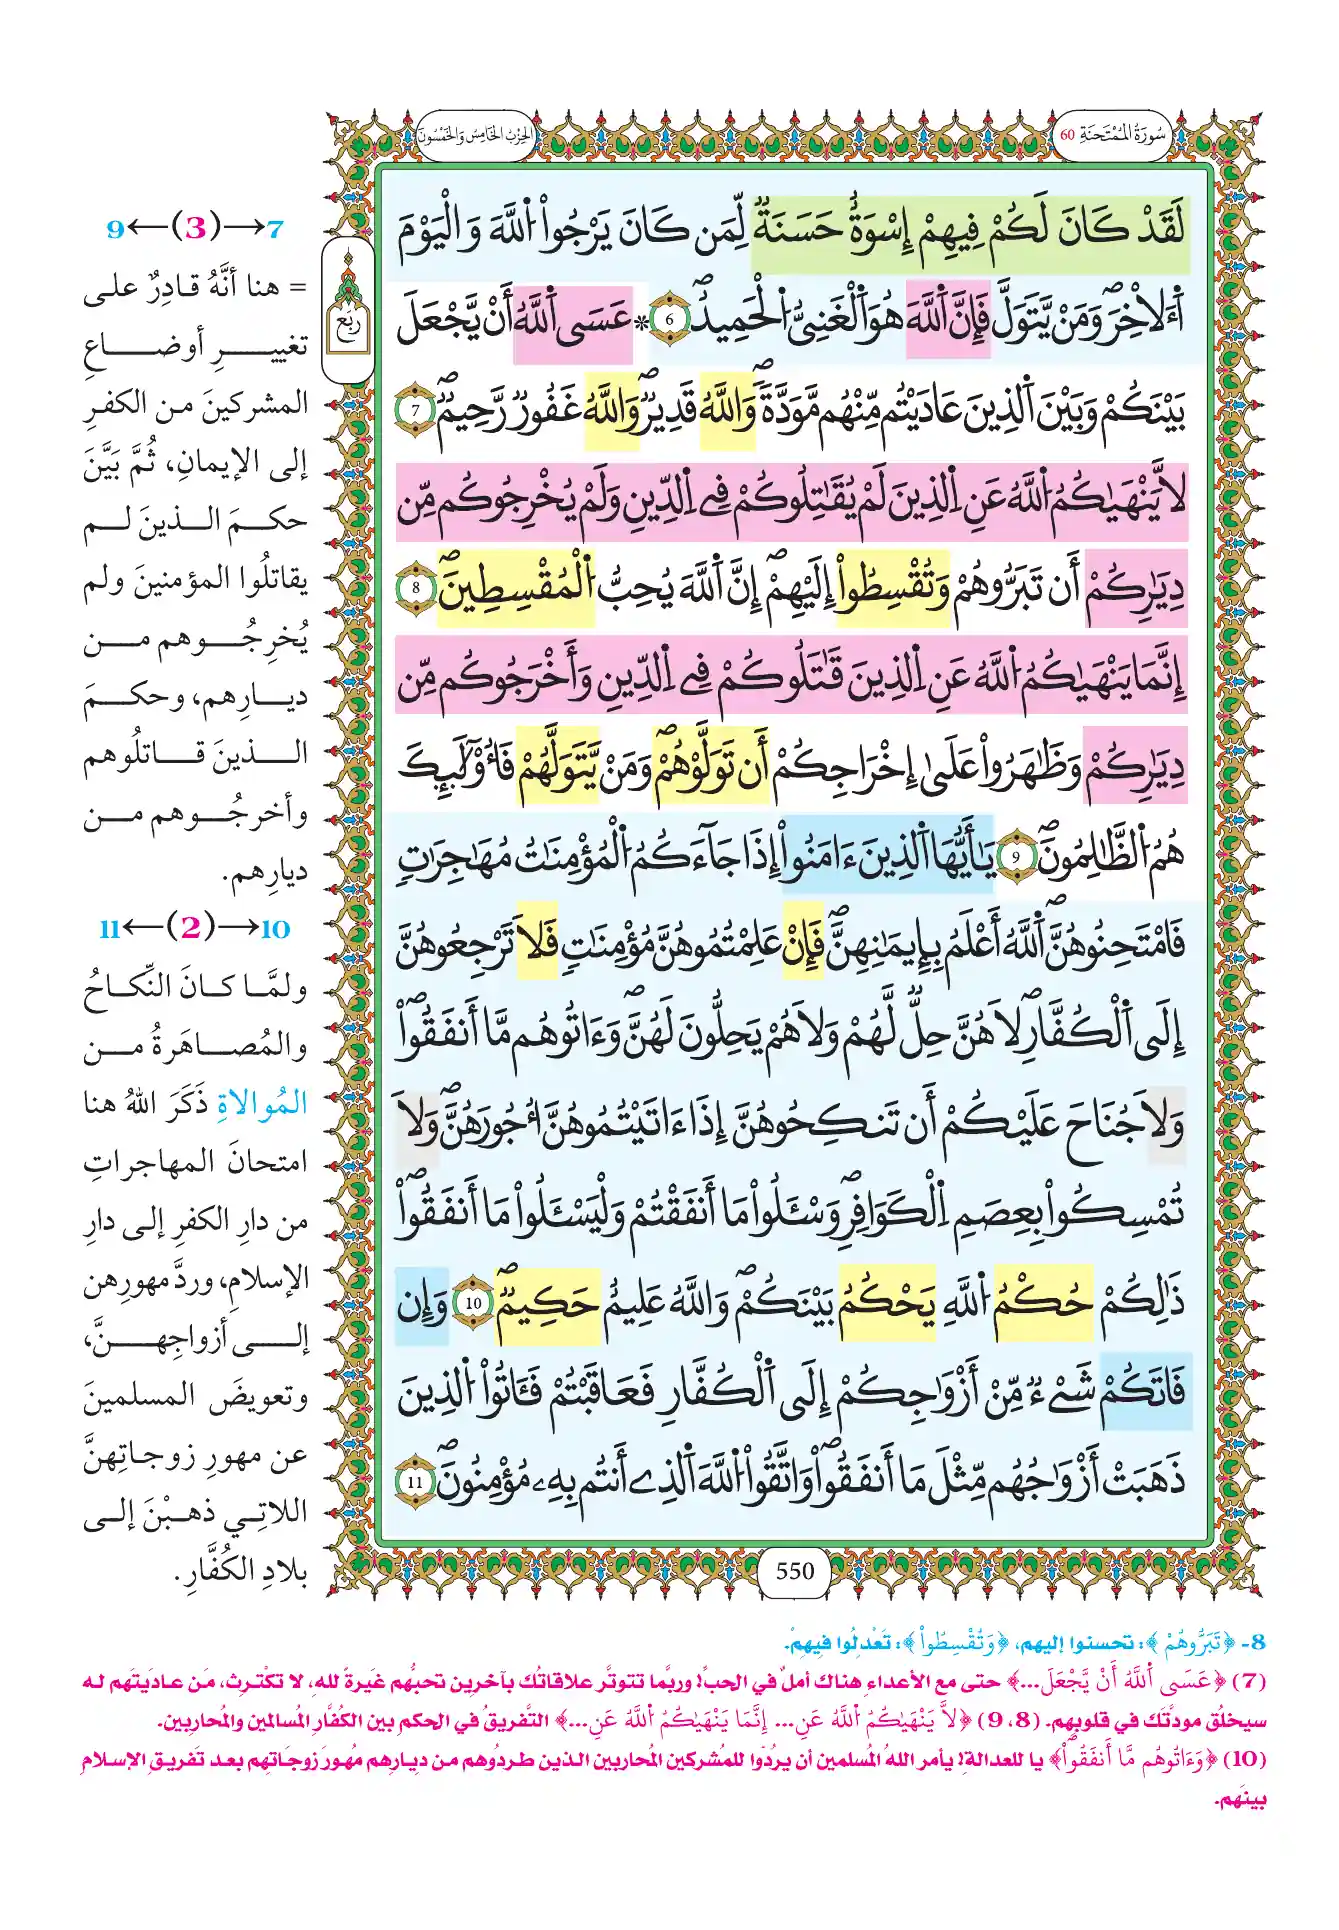 سُورَةُ المُمْتَحنَةِ 60
الحِزْبُ الخَامِسُ وَالخَمْسُونَ
لَقَدْ كَانَ لَكُمْ فِيهِمُۥٓ إِسْوَةٌ حَسَنَةٌ لِّمَن كَانَ يَرْجُواْ اُ۬للَّهَ وَالْيَوْمَ
اَ۬لَاخِرَۖ وَمَنْ يَّتَوَلَّ فَإِنَّ اَ۬للَّهَ هُوَ اَ۬لْغَنِيُّ اُ۬لْحَمِيدُۖ 6 * عَسَى اَ۬للَّهُ أَنْ يَّجْعَلَ
بَيْنَكُمْ وَبَيْنَ اَ۬لذِينَ عَادَيْتُم مِّنْهُم مَّوَدَّةٗۖ وَاللَّهُ قَدِيرٞۖ وَاللَّهُ غَفُورٞ رَّحِيمٞۖ 7
لَّا يَنْهَيٰكُمُ اُ۬للَّهُ عَنِ اِ۬لذِينَ لَمْ يُقَٰتِلُوكُمْ فِے اِ۬لدِّينِ وَلَمْ يُخْرِجُوكُم مِّن
دِيَٰرِكُمْ أَن تَبَرُّوهُمْ وَتُقْسِطُواْ إِلَيْهِمْۖ إِنَّ اَ۬للَّهَ يُحِبُّ اُ۬لْمُقْسِطِينَۖ 8
إِنَّمَا يَنْهَيٰكُمُ اُ۬للَّهُ عَنِ اِ۬لذِينَ قَٰتَلُوكُمْ فِے اِ۬لدِّينِ وَأَخْرَجُوكُم مِّن
دِيَٰرِكُمْ وَظَٰهَرُواْ عَلَىٰٓ إِخْرَاجِكُمْ أَن تَوَلَّوْهُمْۖ وَمَنْ يَّتَوَلَّهُمْ فَأُوْلَٰٓئِكَ
هُمُ اُ۬لظَّٰلِمُونَۖ 9 يَٰٓأَيُّهَا اَ۬لذِينَ ءَامَنُوٓاْ إِذَا جَآءَكُمُ اُ۬لْمُؤْمِنَٰتُ مُهَٰجِرَٰتٖ
فَامْتَحِنُوهُنَّۖ اَ۬للَّهُ أَعْلَمُ بِإِيمَٰنِهِنَّۖ فَإِنْ عَلِمْتُمُوهُنَّ مُؤْمِنَٰتٖ فَلَا تَرْجِعُوهُنَّ
إِلَى اَ۬لْكُفَّارِۖ لَا هُنَّ حِلّٞ لَّهُمْ وَلَا هُمْ يَحِلُّونَ لَهُنَّۖ وَءَاتُوهُم مَّآ أَنفَقُواْۖ
وَلَا جُنَاحَ عَلَيْكُمُۥٓ أَن تَنكِحُوهُنَّ إِذَآ ءَاتَيْتُمُوهُنَّ أُجُورَهُنَّۖ وَلَا
تُمْسِكُواْ بِعِصَمِ اِ۬لْكَوَافِرِۖ وَسْـَٔلُواْ مَآ أَنفَقْتُمْ وَلْيَسْـَٔلُواْ مَآ أَنفَقُواْۖ
ذَٰلِكُمْ حُكْمُ اُ۬للَّهِ يَحْكُمُ بَيْنَكُمْۖ وَاللَّهُ عَلِيمٌ حَكِيمٞۖ 10 وَإِن
فَاتَكُمْ شَےْءٞ مِّنْ أَزْوَٰجِكُمُۥٓ إِلَى اَ۬لْكُفَّارِ فَعَاقَبْتُمْ فَـَٔاتُواْ اُ۬لذِينَ
ذَهَبَتَ اَزْوَٰجُهُم مِّثْلَ مَآ أَنفَقُواْۖ وَاتَّقُواْ اُ۬للَّهَ اَ۬لذِےٓ أَنتُم بِهِۦ مُؤْمِنُونَۖ 11
رُبع
550
7→(3)←9
= هنا أنَّهُ قادِرٌ على
تغييرِ أوضاعِ
المشركينَ من الكفرِ
إلى الإيمانِ، ثُمَّ بَيَّنَ
حكمَ الذينَ لم
يقاتلُوا المؤمنينَ ولم
يُخرِجُوهم من
ديارِهم، وحكمَ
الذينَ قاتلُوهم
وأخرجُوهم من
ديارِهم.
10→(2)←11
ولمَّا كانَ النِّكاحُ
والمُصاهَرةُ من
المُوالاةِ ذَكَرَ اللهُ هنا
امتحانَ المهاجراتِ
من دارِ الكفرِ إلى دارِ
الإسلامِ، وردَّ مهورِهن
إلى أزواجِهنَّ،
وتعويضَ المسلمينَ
عن مهورِ زوجاتِهنَّ
اللاتِي ذهبْنَ إلى
بلادِ الكُفَّارِ.
8- ﴿تَبَرُّوهُمْ﴾: تحسنوا إليهم، ﴿وَتُقْسِطُواْ﴾: تَعْدِلُوا فِيهِمْ.
(7) ﴿عَسَى اَ۬للَّهُ أَنْ يَّجْعَلَ...﴾ حتى مع الأعداءِ هناك أملٌ في الحبِّ! وربَّما تتوتَّر علاقاتُك بآخرِين تحبُّهم غَيرةً للهِ، لا تكْترِث، مَن عادَيتَهم له
سيخلُق مودَّتَك في قلوبِهم. (8، 9) ﴿لَّا يَنْهَيٰكُمُ اُ۬للَّهُ عَنِ... إِنَّمَا يَنْهَيٰكُمُ اُ۬للَّهُ عَنِ...﴾ التَّفريقُ في الحكمِ بين الكفَّارِ المُسالمِين والمُحارِبِين.
(10) ﴿وَءَاتُوهُم مَّآ أَنفَقُواْۖ﴾ يا للعدالةِ! يأمر اللهُ المُسلمين أن يردُّوا للمُشركين المُحاربين الذين طردُوهم من ديارِهم مُهورَ زوجَاتِهم بعد تَفريقِ الإسلامِ
بينَهم.